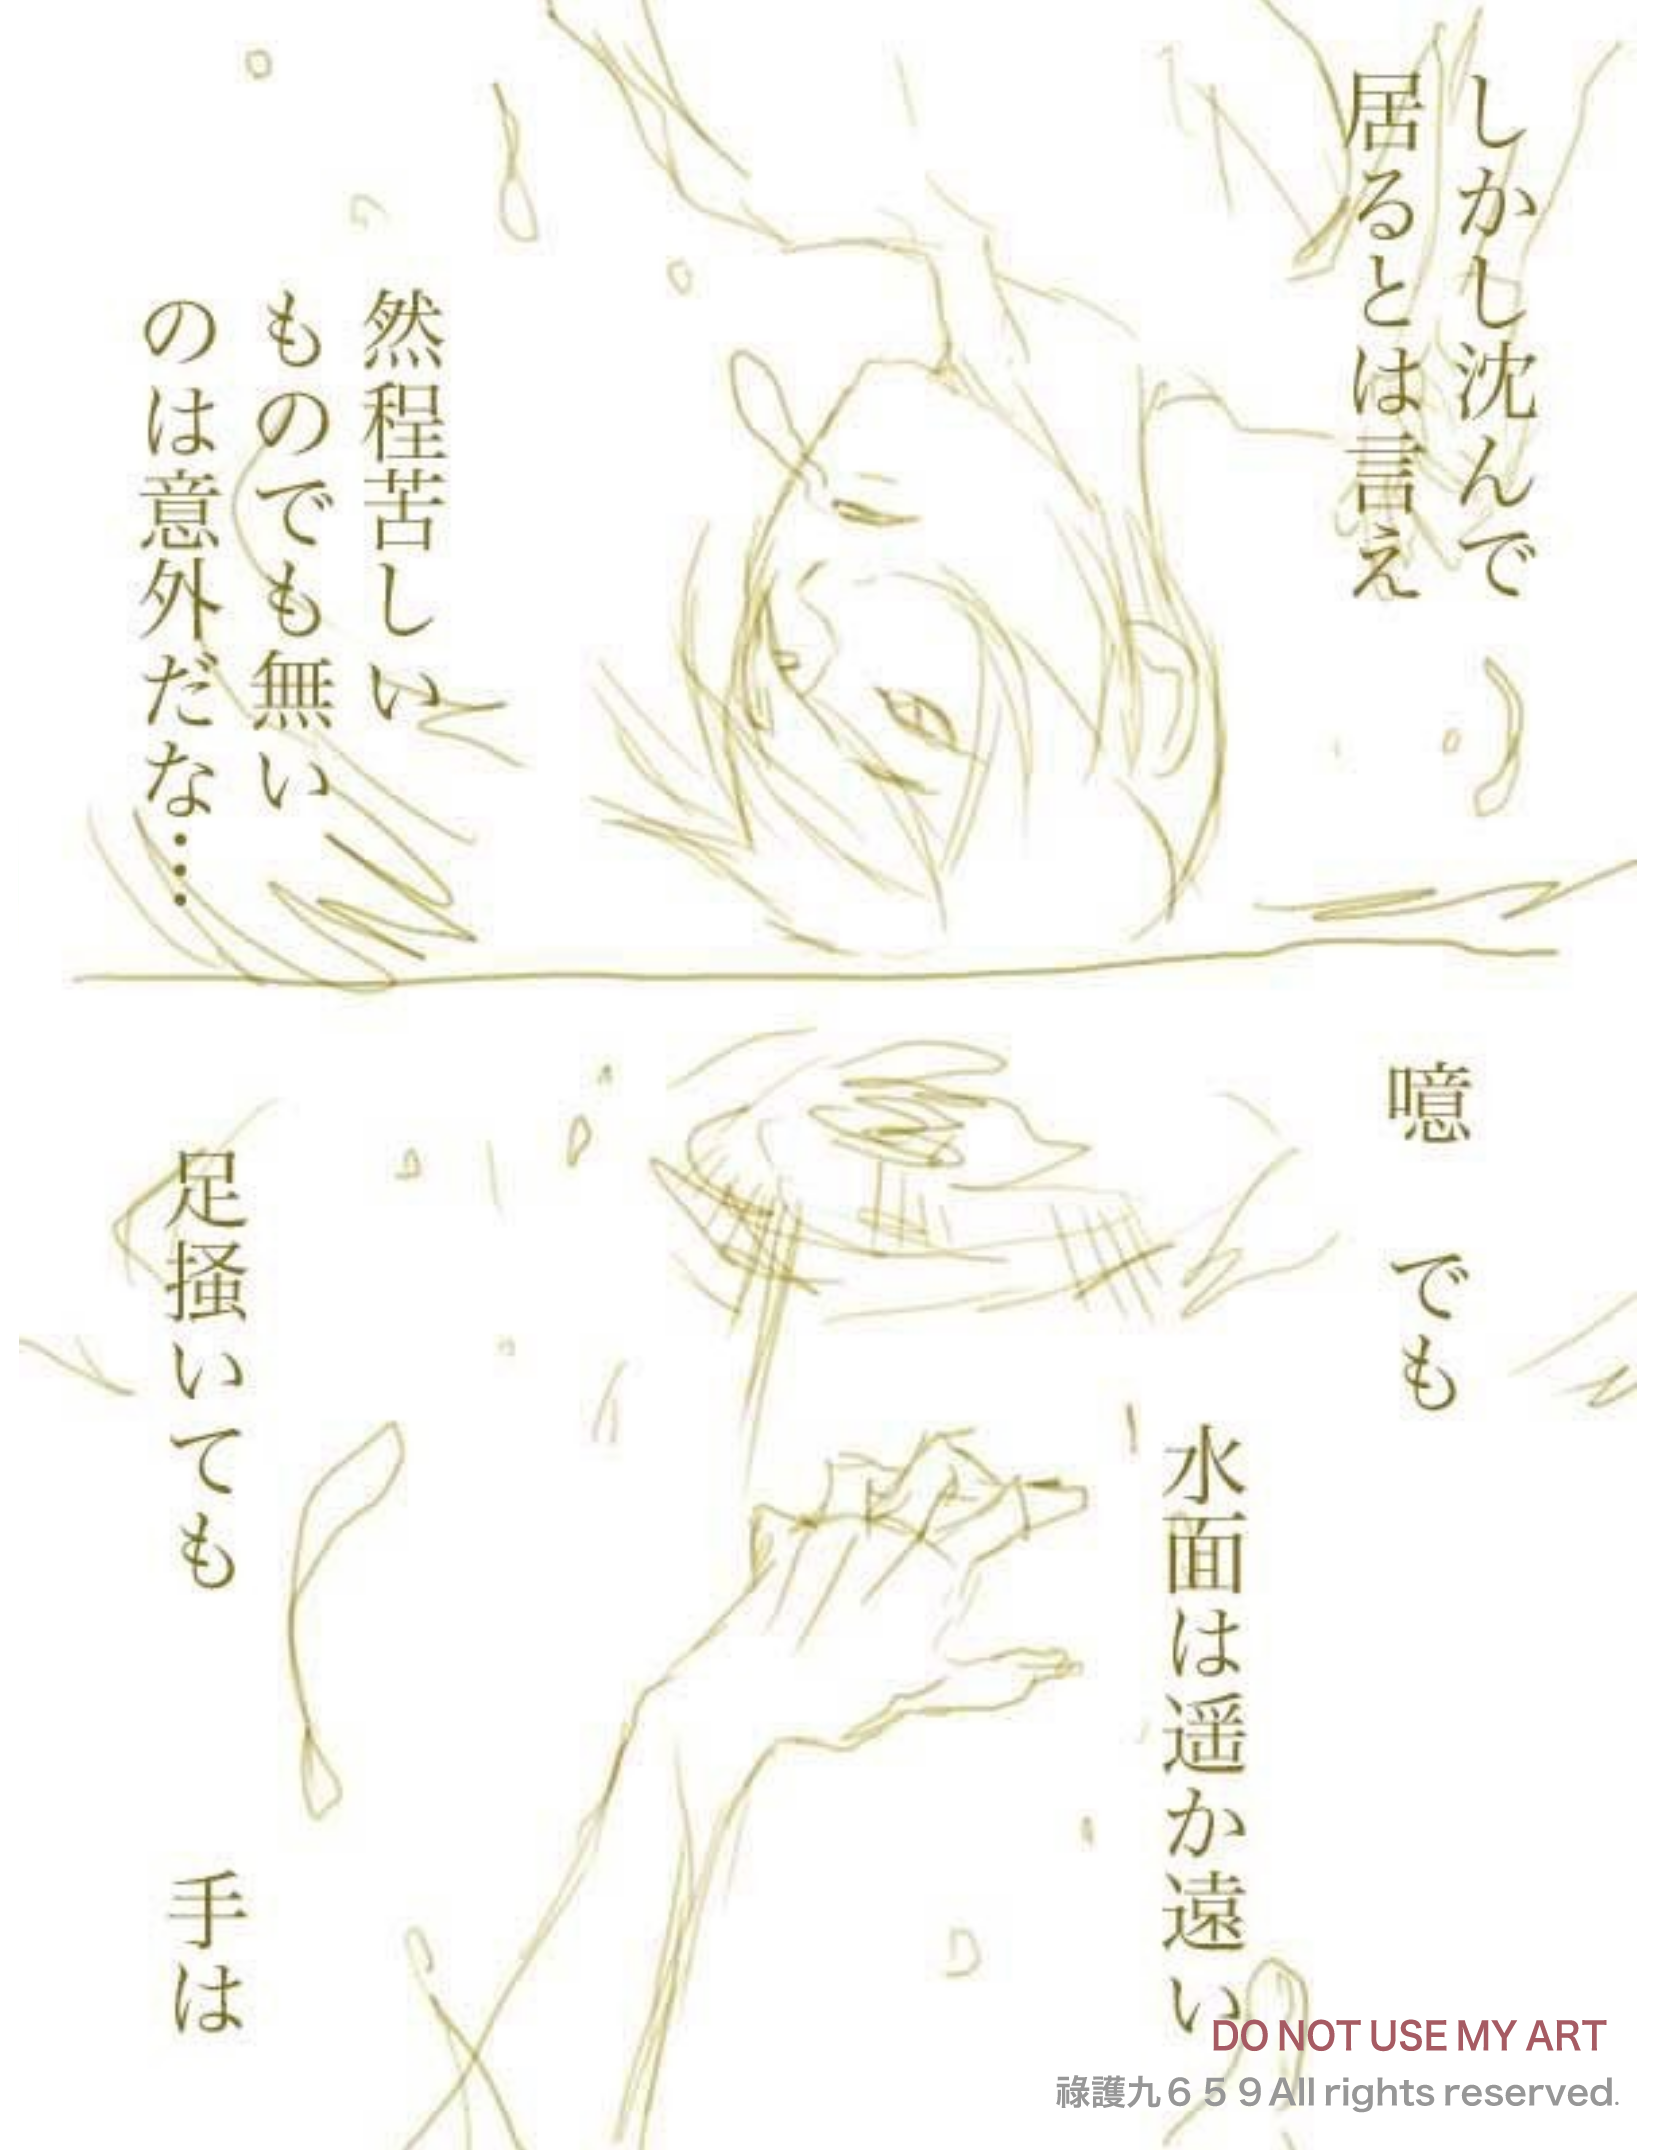 しかし沈んで
居るとは言え
然程苦しい
ものでも無い
のは意外だな…
噫 でも
水面は遥か遠い
足掻いても 手は
DO NOT USE MY ART
祿護九６５９All rights reserved.